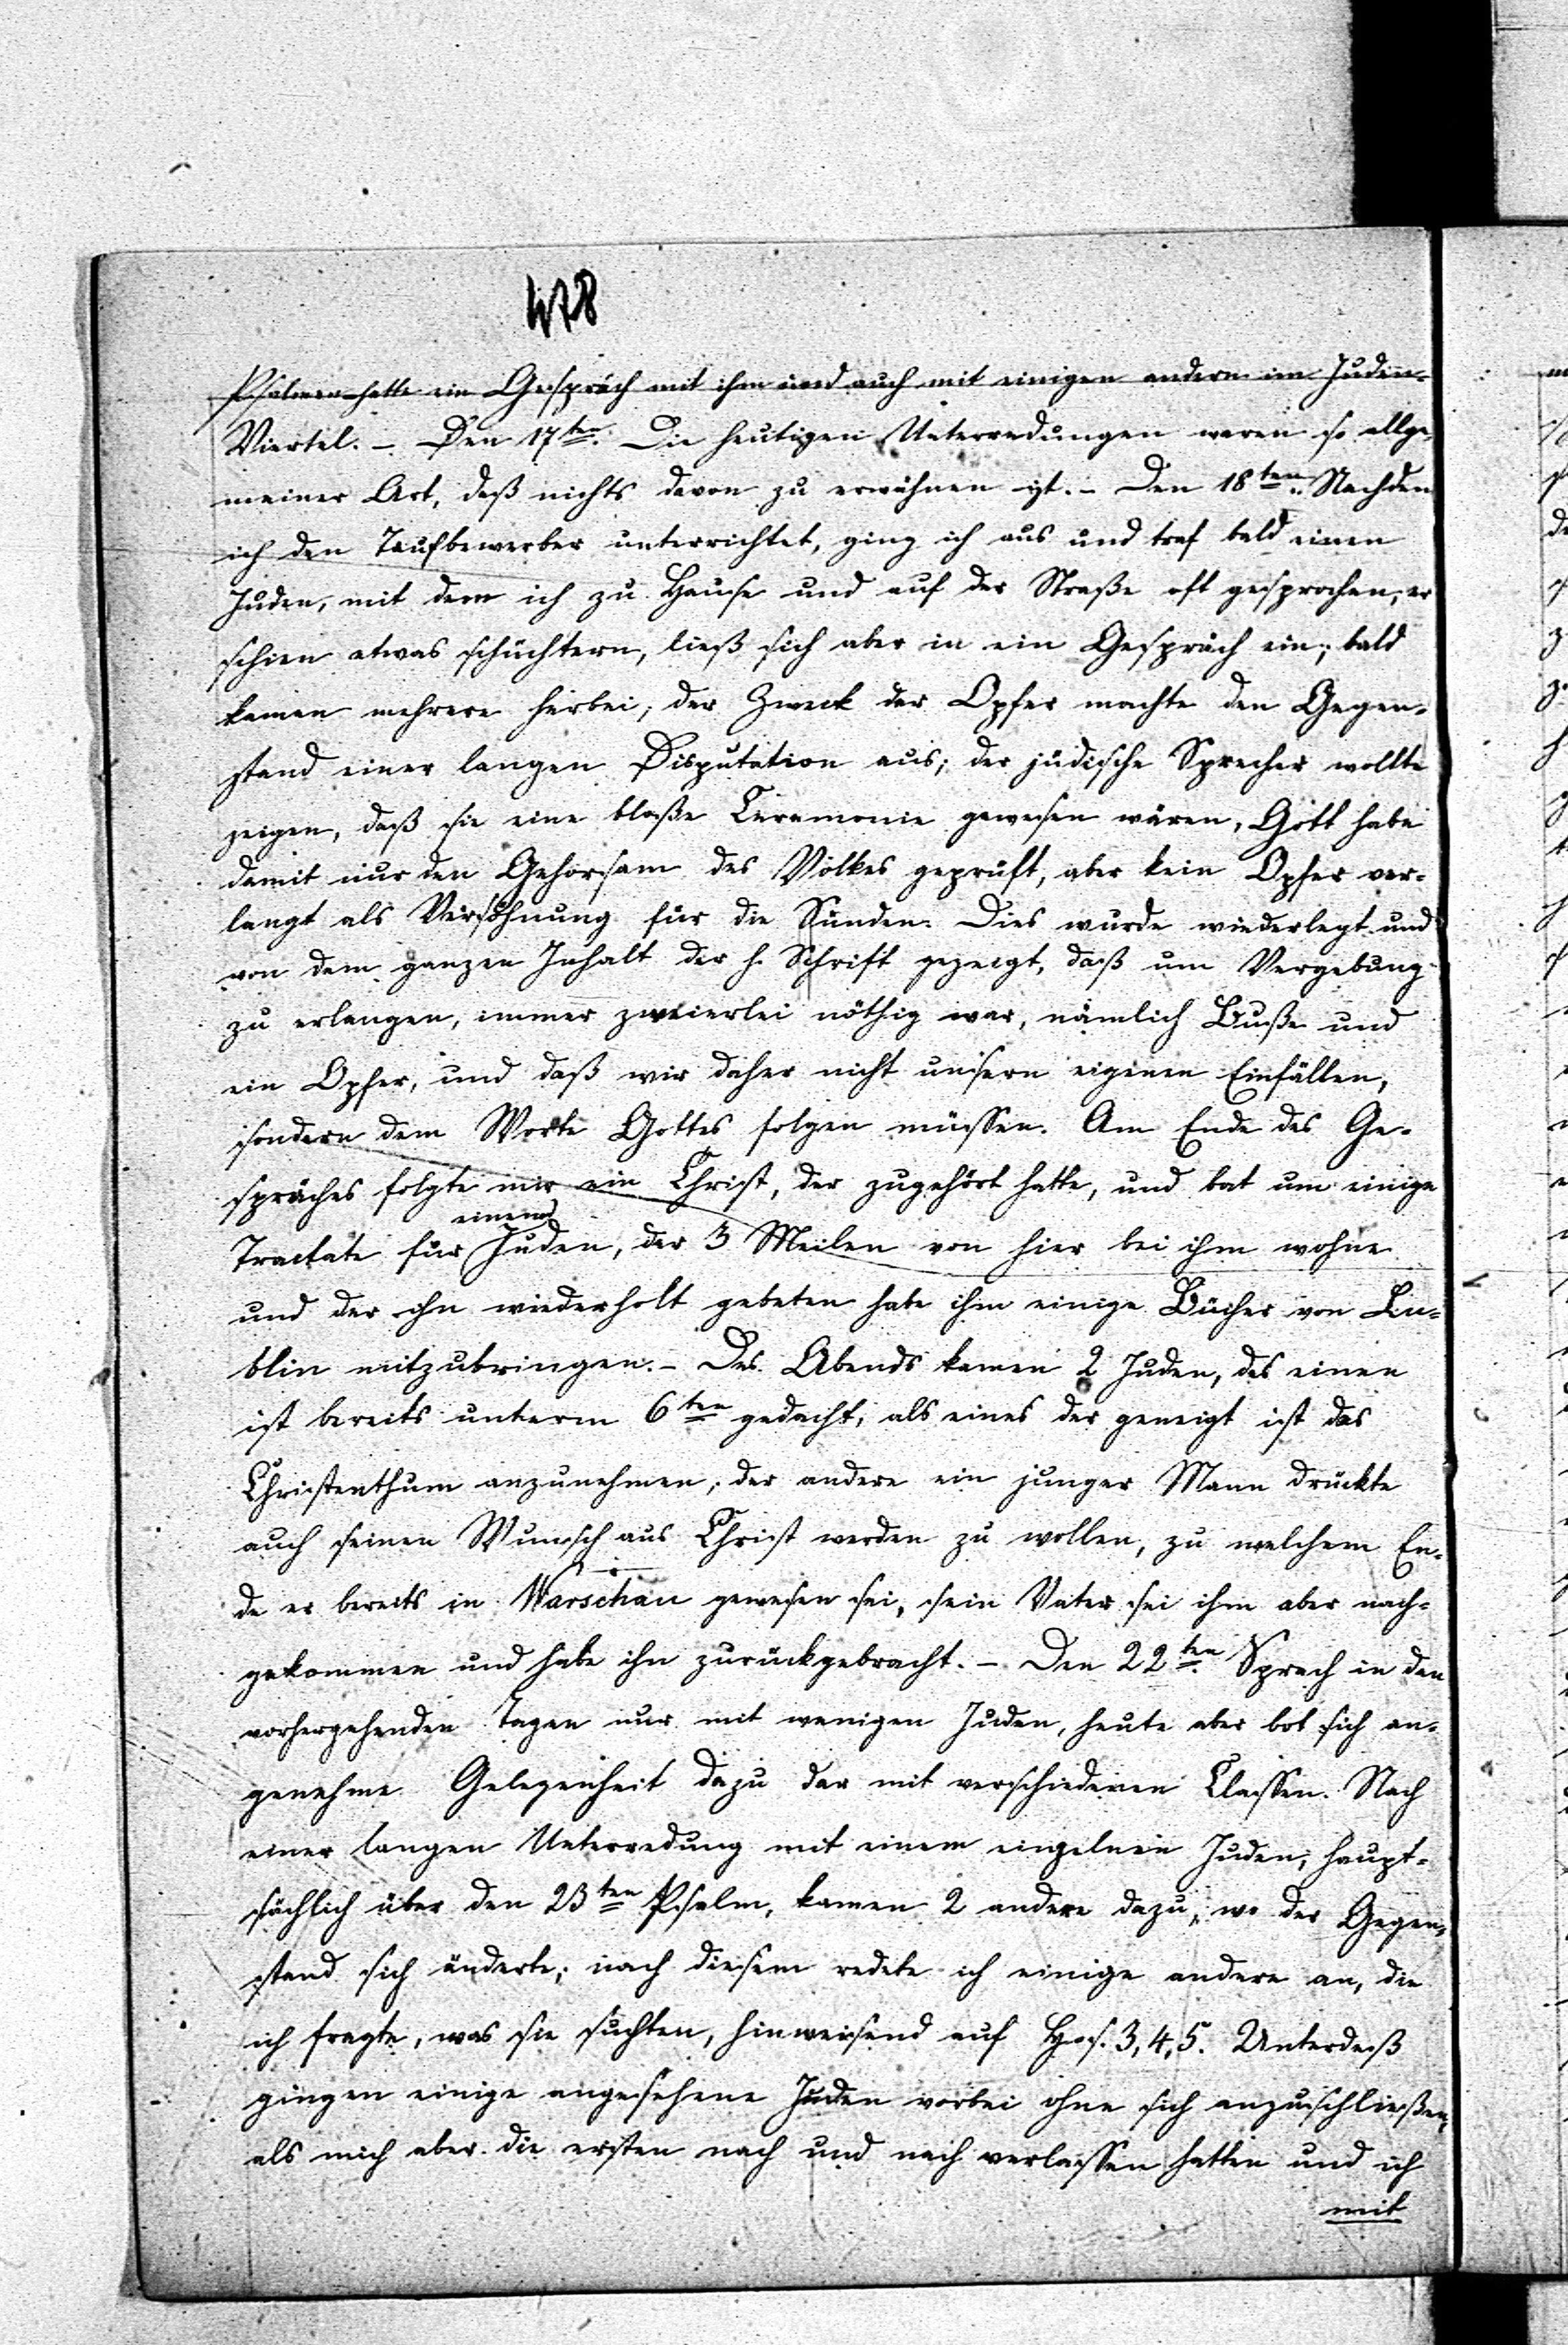 478
Psalmen hatte ein Gespräch mit ihm und auch mit einigen andern im Juden-
Viertel. – Den 17ten. Die heutigen Unterredungen waren so allge-
meiner Art, daß nichts davon zu erwähnen ist. – Den 18ten. Nachdem
ich den Taufbewerber unterrichtet, ging ich aus und traf bald einen
Juden, mit dem ich zu Hause und auf der Straße oft gesprochen, er
schien etwas schüchtern, ließ sich aber in ein Gespräch ein; bald
kamen mehrere herbei, der Zweck der Opfer machte den Gegen-
stand einer langen Disputation aus; der jüdische Sprecher wollte
zeigen, daß sie eine bloße Ceremonie gewesen wären, Gott habe
damit nur den Gehorsam des Volkes geprüft, aber kein Opfer ver-
langt als Versöhnung für die Sünden. Dies wurde wiederlegt und
von dem ganzen Inhalt der h. Schrift gezeigt, daß um Vergebung
zu erlangen, immer zweierlei nöthig war, nämlich Buße und
ein Opfer, und daß wir daher nicht unsern eigenen Einfällen,
sondern dem Worte Gottes folgen müssen. Am Ende des Ge-
spräches folgte mir ein Christ, der zugehört hatte, und bat um einige
einen
Tractate für Juden, der 3 Meilen von hier bei ihm wohne
und der ihn wiederholt gebeten habe ihm einige Bücher von Lu-
blin mitzubringen. – Des Abends kamen 2 Juden, des einen
ist bereits unterm 6ten gedacht, als eines der geneigt ist das
Christenthum anzunehmen, der andere ein junger Mann drückte
auch seinen Wunsch aus Christ werden zu wollen, zu welchem En-
de er bereits in Warschau gewesen sei, sein Vater sei ihm aber nach-
gekommen und habe ihn zurückgebracht. – Den 22ten. Sprach in den
vorhergehenden Tagen nur mit wenigen Juden, heute aber bot sich an-
genehme Gelegenheit dazu dar mit verschiedenen Classen. Nach
einer langen Unterredung mit einem einzelnen Juden, haupt-
sächlich über den 23ten Psalm, kamen 2 andere dazu, wo der Gegen-
stand sich änderte; nach diesem redete ich einige andere an, die
ich fragte, was sie suchten, hinweisend auf Hos. 3, 4, 5. Unterdeß
gingen einige angesehene Juden vorbei ohne sich anzuschließen,
als mich aber die ersten nach und nach verlassen hatten und ich
mit